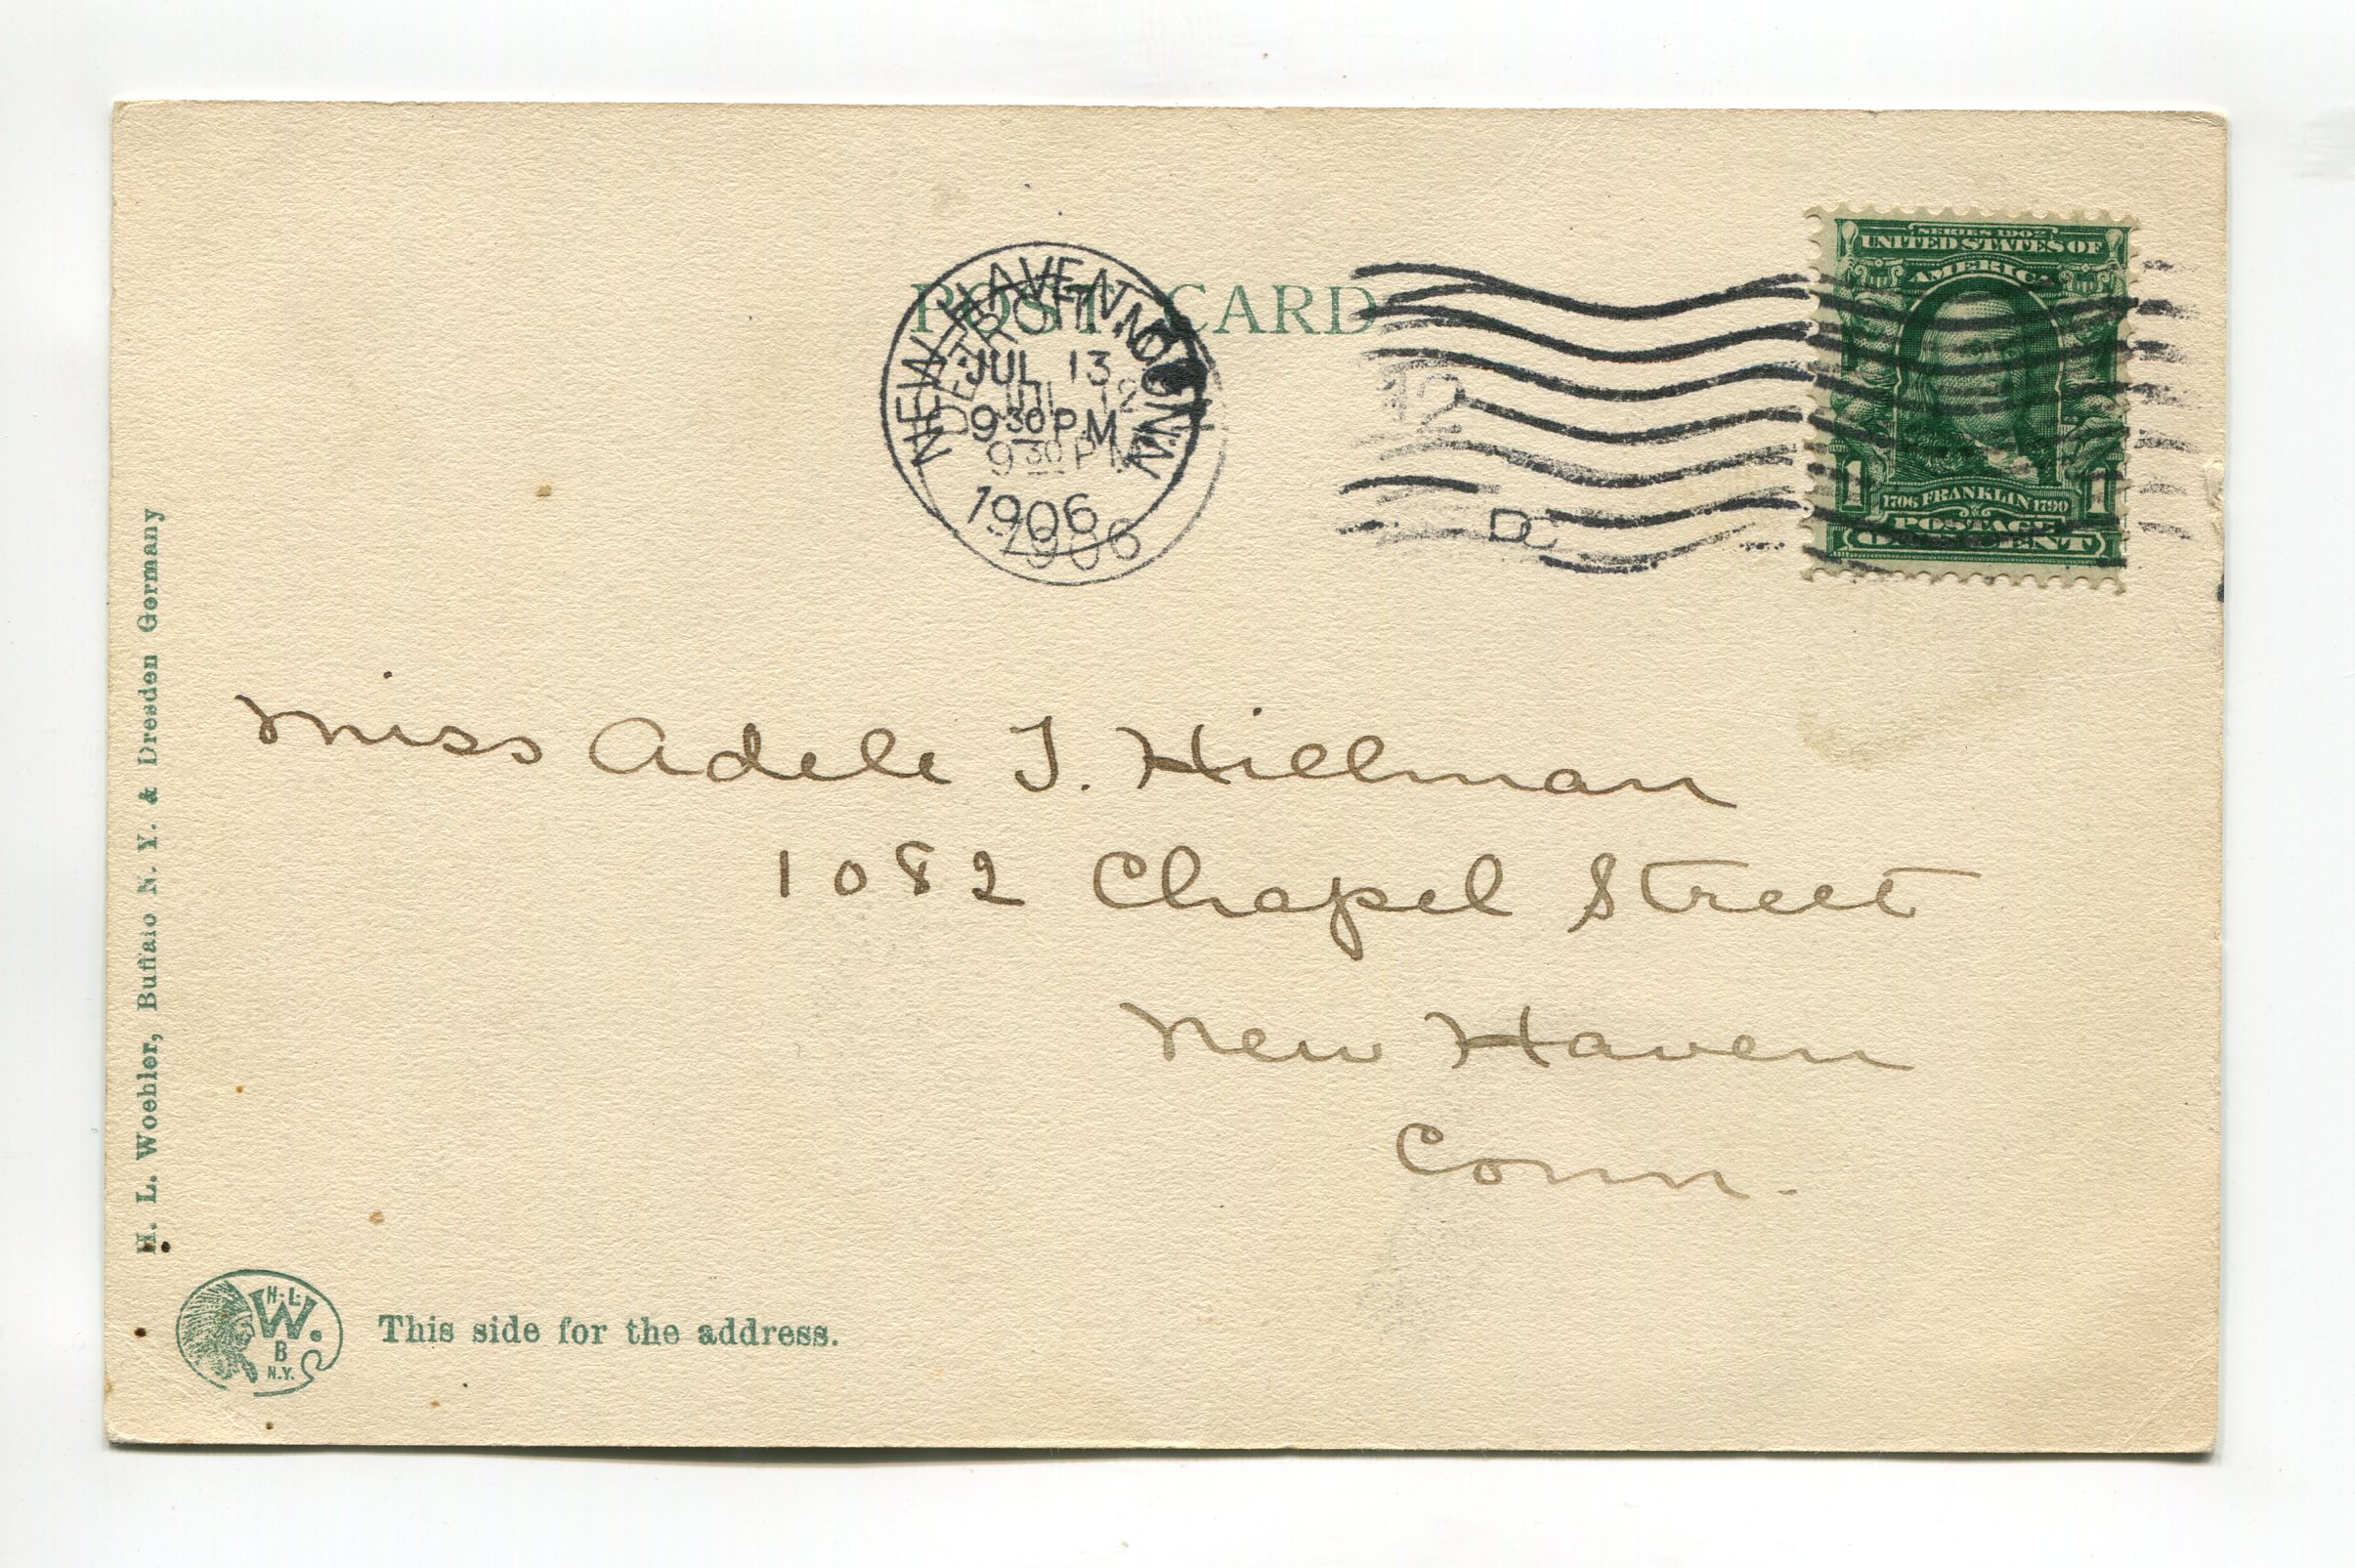 POST CARD
NEW HAVEN CONN
JUL 13
9 30 PM
1906
DETROIT, MICH
JUL 12
9 30 PM
1906
12
D
SERIES 1902
UNITED STATES OF
AMERICA
1 1706 FRANKLIN 1790 1
POSTAGE
ONE CENT
Miss Adele T. Hillman
1082 Chapel Street
New Haven
Conn.
H. L. Woehler, Buffalo N. Y. & Dresden Germany
H. L.
W.
B
N.Y.
This side for the address.